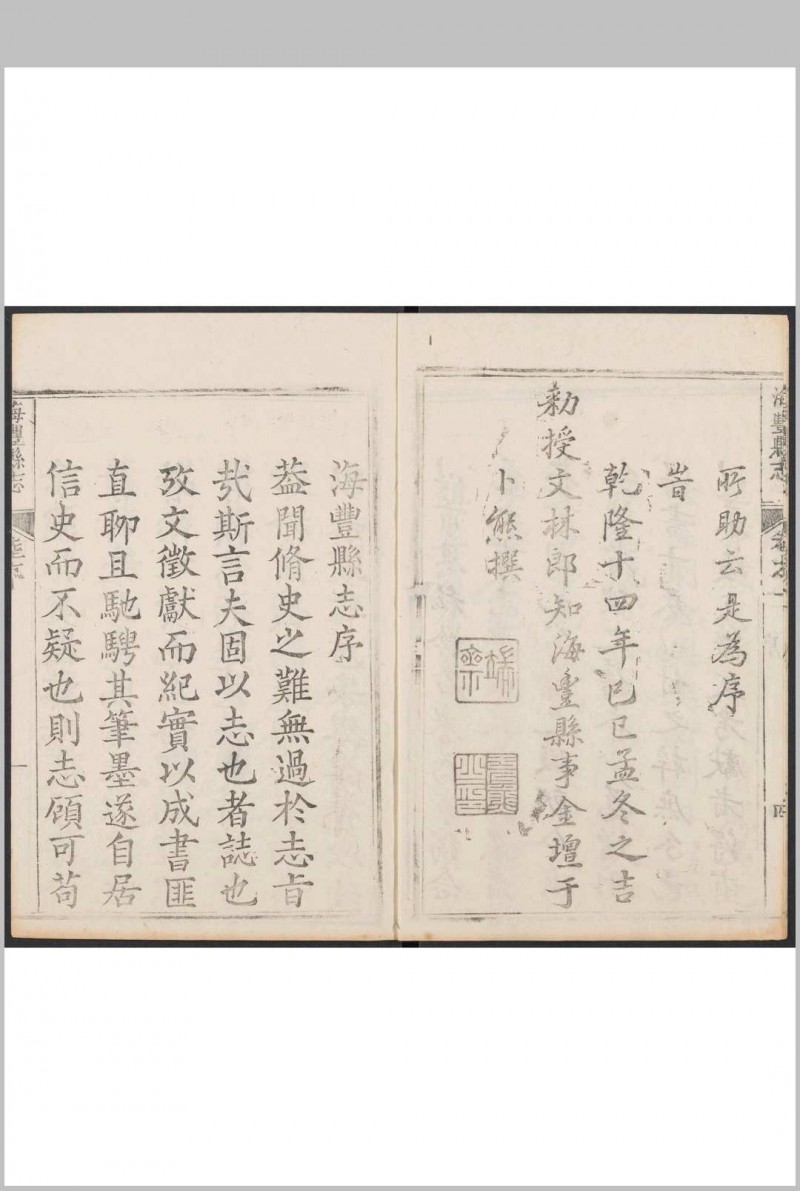 所助云是為序
旹
乾隆十四年己巳孟冬之吉
勅授文林郎知海豐縣事金壇于
卜熊撰
海豐縣志
海豐縣志序
葢聞脩史之難無過於志旨
㢤斯言夫固以志也者誌也
攷文徵獻而紀實以成書匪
直聊且馳騁其筆墨遂自居
信史而不疑也則志顧可苟
海豐縣志